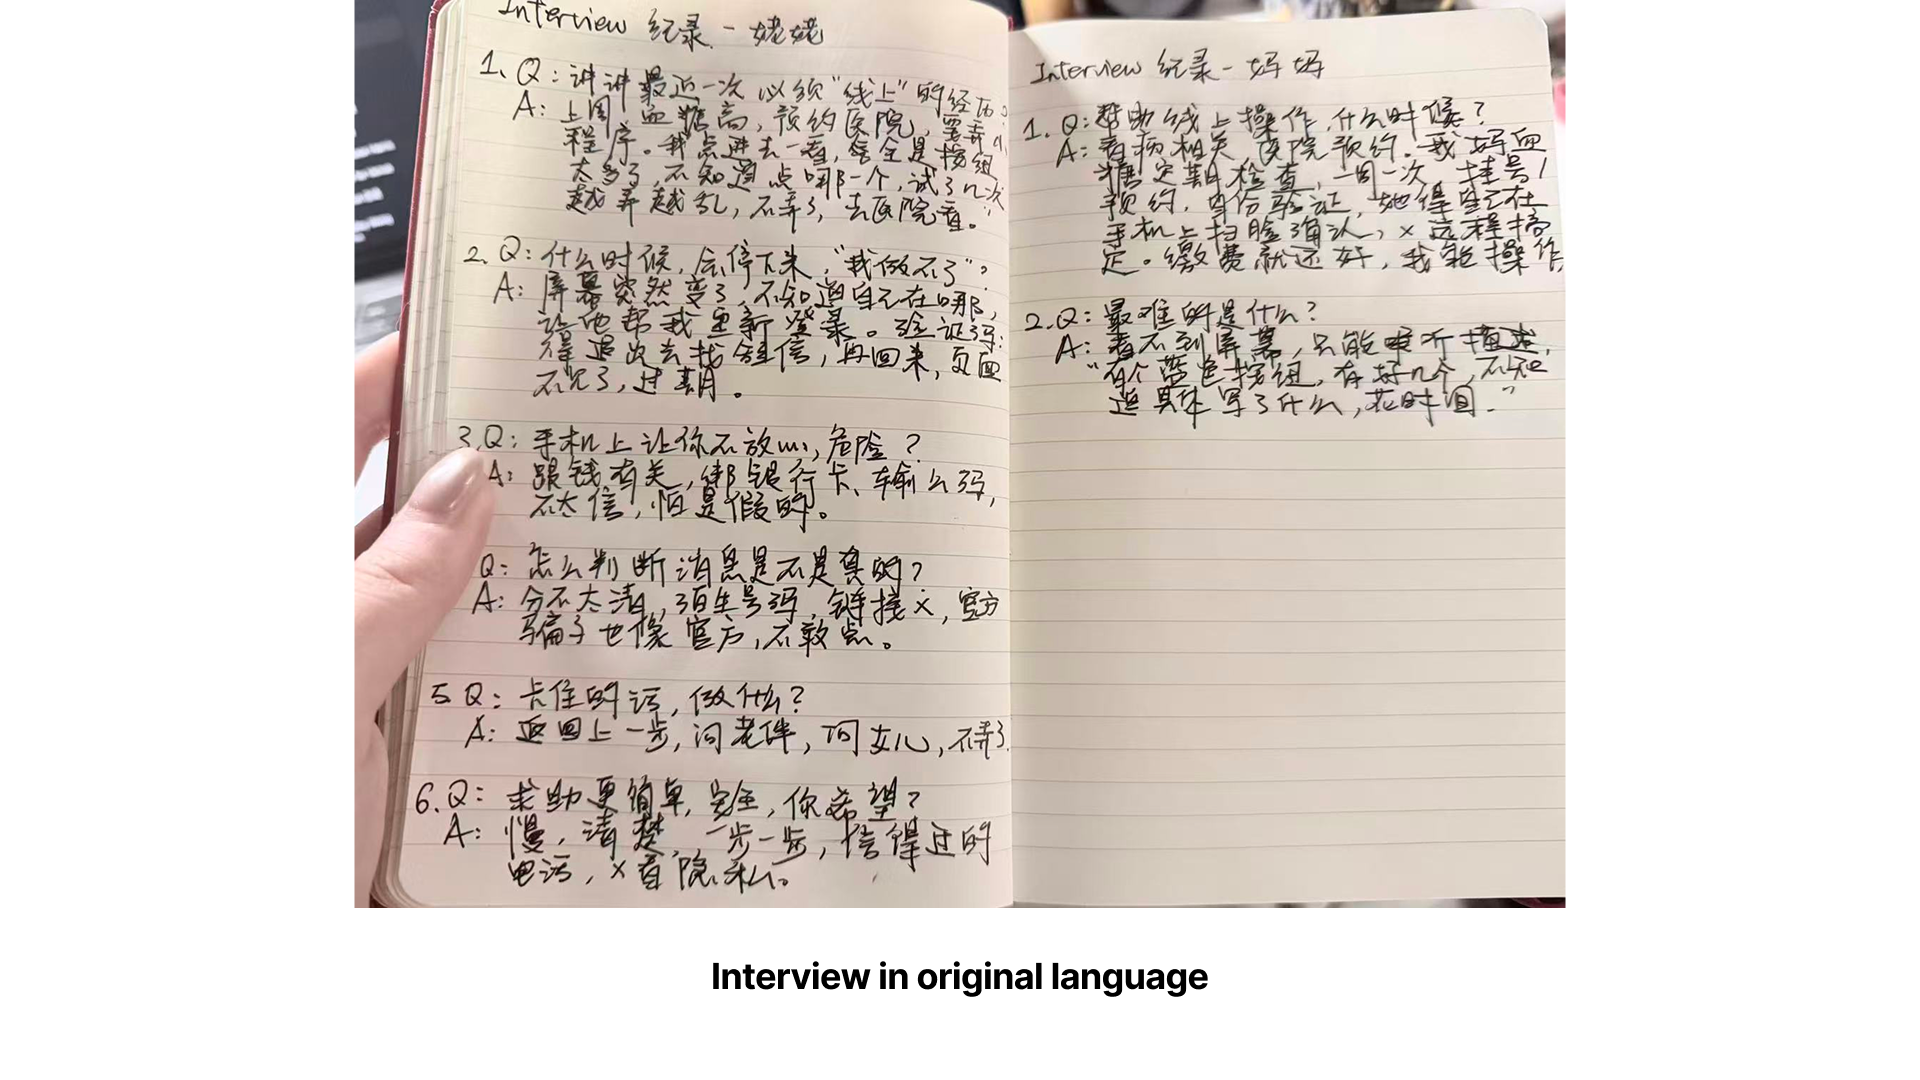 Interview 纪录 - 姥姥
1. Q: 讲讲最近一次必须"线上"的经历?
A: 上周血糖高, 预约医院, 要弄小
程序。我点进去一看, 全是按钮
太多了, 不知道点哪一个, 试了几次
越弄越乱, 不弄了, 去医院看。
2. Q: 什么时候, 会停下来, "我做不了"?
A: 屏幕突然变了, 不知道自己在哪,
让他帮我重新登录。验证码:
得退出去找短信, 再回来, 页面
不见了, 过期。
3. Q: 手机上让你不放心, 危险?
A: 跟钱有关, 绑银行卡、输么码,
不太信, 怕是假的。
Q: 怎么判断消息是不是真的?
A: 分不太清, 陌生号码, 链接 x, 官方
骗子也像官方, 不敢点。
5. Q: 卡住的话, 做什么?
A: 返回上一步, 问老伴, 问女儿, 不弄了.
6. Q: 求助更简单, 安全, 你希望?
A: 慢, 清楚, 一步一步, 信得过的
电话, x看隐私。
Interview 纪录 - 妈妈
1. Q: 帮助线上操作, 什么时候?
A: 看病相关 医院预约. 我妈血
糖定期检查, 一周一次 挂号/
预约, 身份验证, 她得自己在
手机上扫脸确认, x 远程搞
定。缴费就还好, 我能操作,
2. Q: 最难的是什么?
A: 看不到屏幕, 只能听描述,
"有个蓝色按钮, 有好几个, 不知
道具体写了什么, 花时间."
Interview in original language